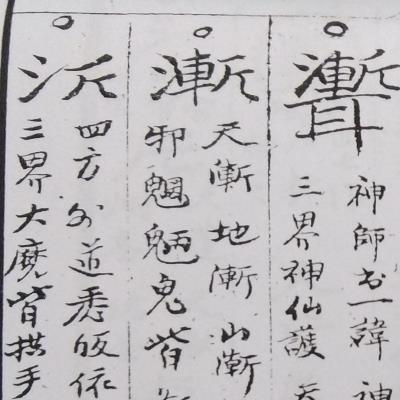 聻
神師一諱神
三界神仙護天
漸
天漸地漸山漸
邪魍魎鬼皆
沂
四方外道悉皈依
三界大魔皆拱手